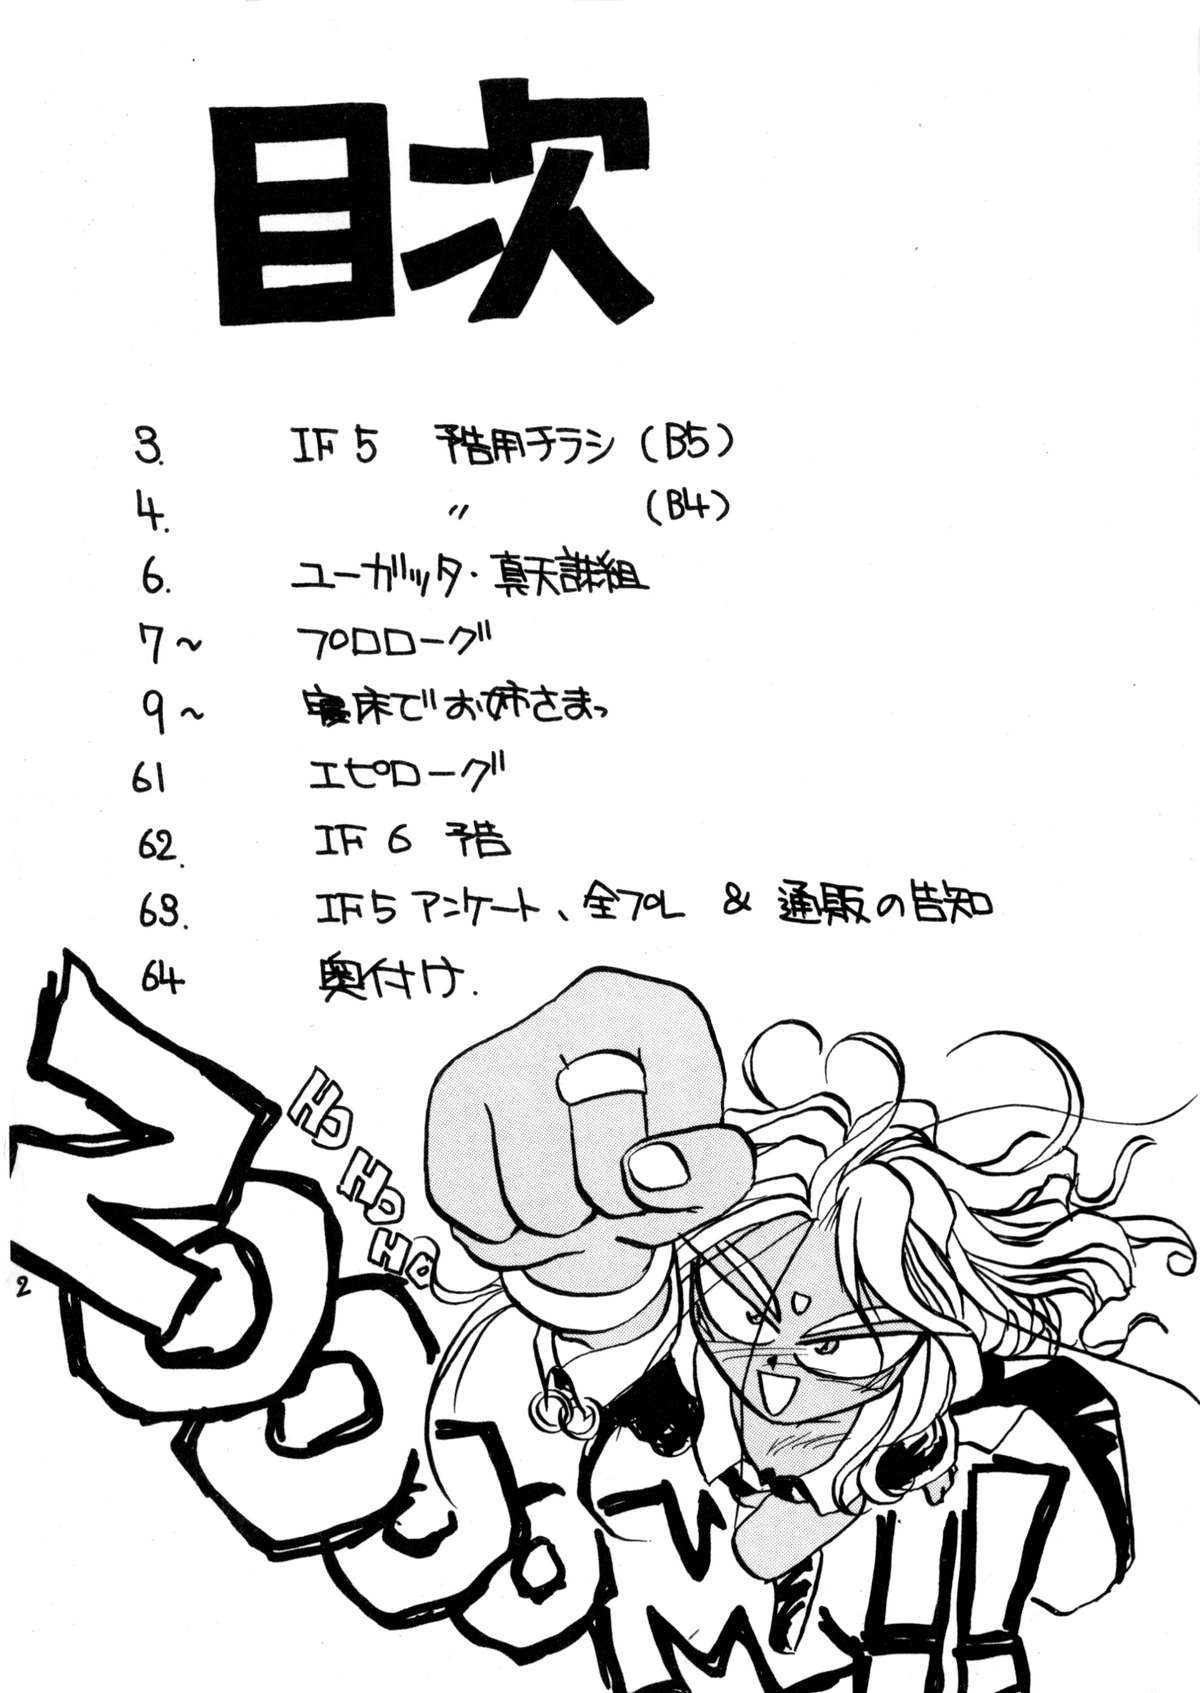 目次
3. IF5 予告用チラシ(B5)
4. 〃 (B4)
6. ユーガッタ・真天誅組
7~ プロローグ
9~ 寝床でお姉さまっ
61 エピローグ
62. IF6 予告
63. IF5アンケート、全プレ & 通販の告知
64 奥付け.
HO HO HO
ZOOOOM!!
2